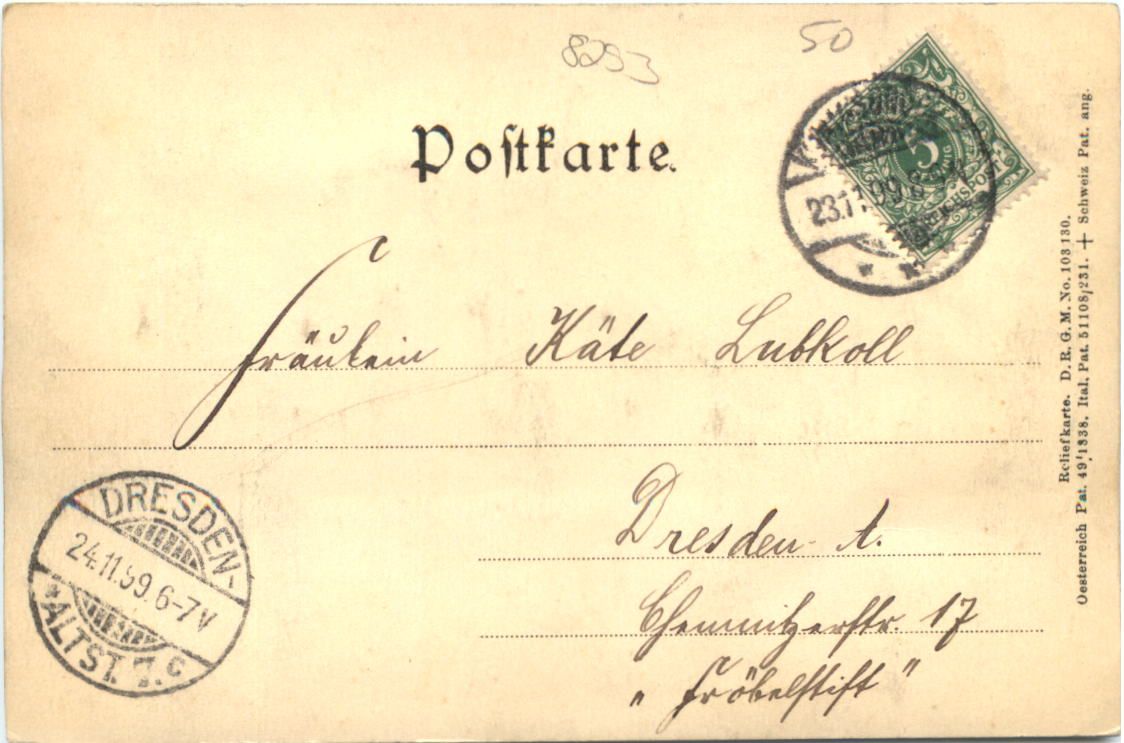 8253
50
Postkarte.
5
PFENNIG
REICHSPOST
23.11.99.8
Fräulein Käte Lubkoll
Dresden-A.
Chemnitzerstr. 17
"Fröbelstift"
DRESDEN-
24.11.99.6-7V
*ALTST. 7.c
Reliefkarte. D. R. G. M. No. 103130.
Oesterreich Pat. 49/1338. Ital. Pat. 51108/231. + Schweiz Pat. ang.